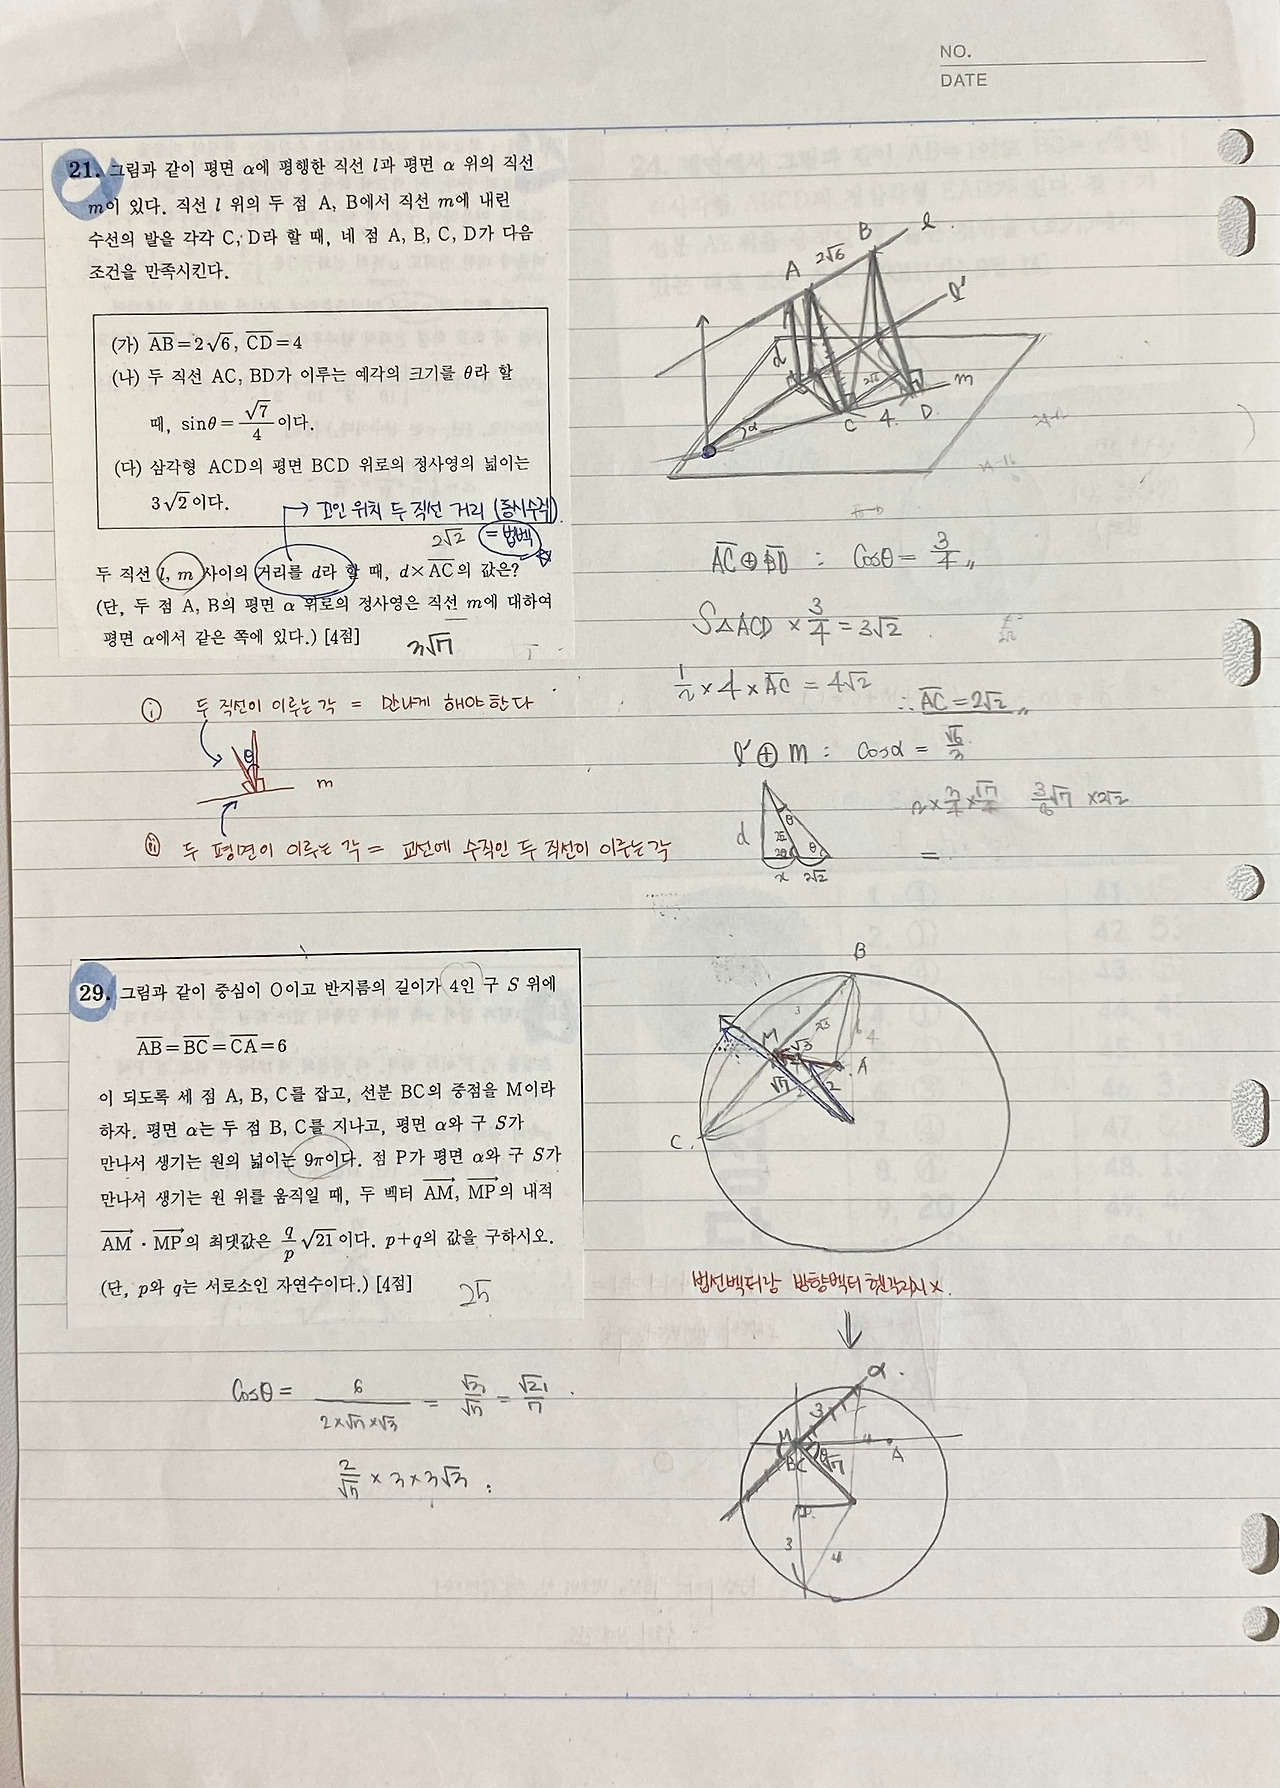 NO.
DATE
21. 그림과 같이 평면 α에 평행한 직선 l과 평면 α 위의 직선
m이 있다. 직선 l 위의 두 점 A, B에서 직선 m에 내린
수선의 발을 각각 C, D라 할 때, 네 점 A, B, C, D가 다음
조건을 만족시킨다.
(가) AB=2√6, CD=4
(나) 두 직선 AC, BD가 이루는 예각의 크기를 θ라 할
때, sinθ=√7/4이다.
(다) 삼각형 ACD의 평면 BCD 위로의 정사영의 넓이는
3√2이다.
→ 꼬인 위치 두 직선 거리 (동시수직)
2√2 = 법벡
두 직선 l, m 사이의 거리를 d라 할 때, d×AC의 값은?
(단, 두 점 A, B의 평면 α 위로의 정사영은 직선 m에 대하여
평면 α에서 같은 쪽에 있다.) [4점]
3√7
A 2√6 B l
l'
d
2√6 m
α C 4 D
AC⊕BD : Cosθ = 3/4
S△ACD × 3/4 = 3√2
1/2 × 4 × AC = 4√2
∴ AC = 2√2
l'⊕m : Cosα = √6/3
d θ 2√2 2θ θ
x 2√2
=
ⓘ 두 직선이 이루는 각 = 만나게 해야한다
θ
m
ⓘⓘ 두 평면이 이루는 각 = 교선에 수직인 두 직선이 이루는각
29. 그림과 같이 중심이 O이고 반지름의 길이가 4인 구 S 위에
AB=BC=CA=6
이 되도록 세 점 A, B, C를 잡고, 선분 BC의 중점을 M이라
하자. 평면 α는 두 점 B, C를 지나고, 평면 α와 구 S가
만나서 생기는 원의 넓이는 9π이다. 점 P가 평면 α와 구 S가
만나서 생기는 원 위를 움직일 때, 두 벡터 AM, MP의 내적
AM · MP의 최댓값은 q/p √21이다. p+q의 값을 구하시오.
(단, p와 q는 서로소인 자연수이다.) [4점]
25
B
M √3 A
√7 2
C
법선벡터랑 방향벡터 헷갈리지 x.
Cosθ = 6/(2×√7×√3) = √3/√7 = √21/7
2/√7 × 3 × 3√3
α
3
M 4 A
BC √7
3 4